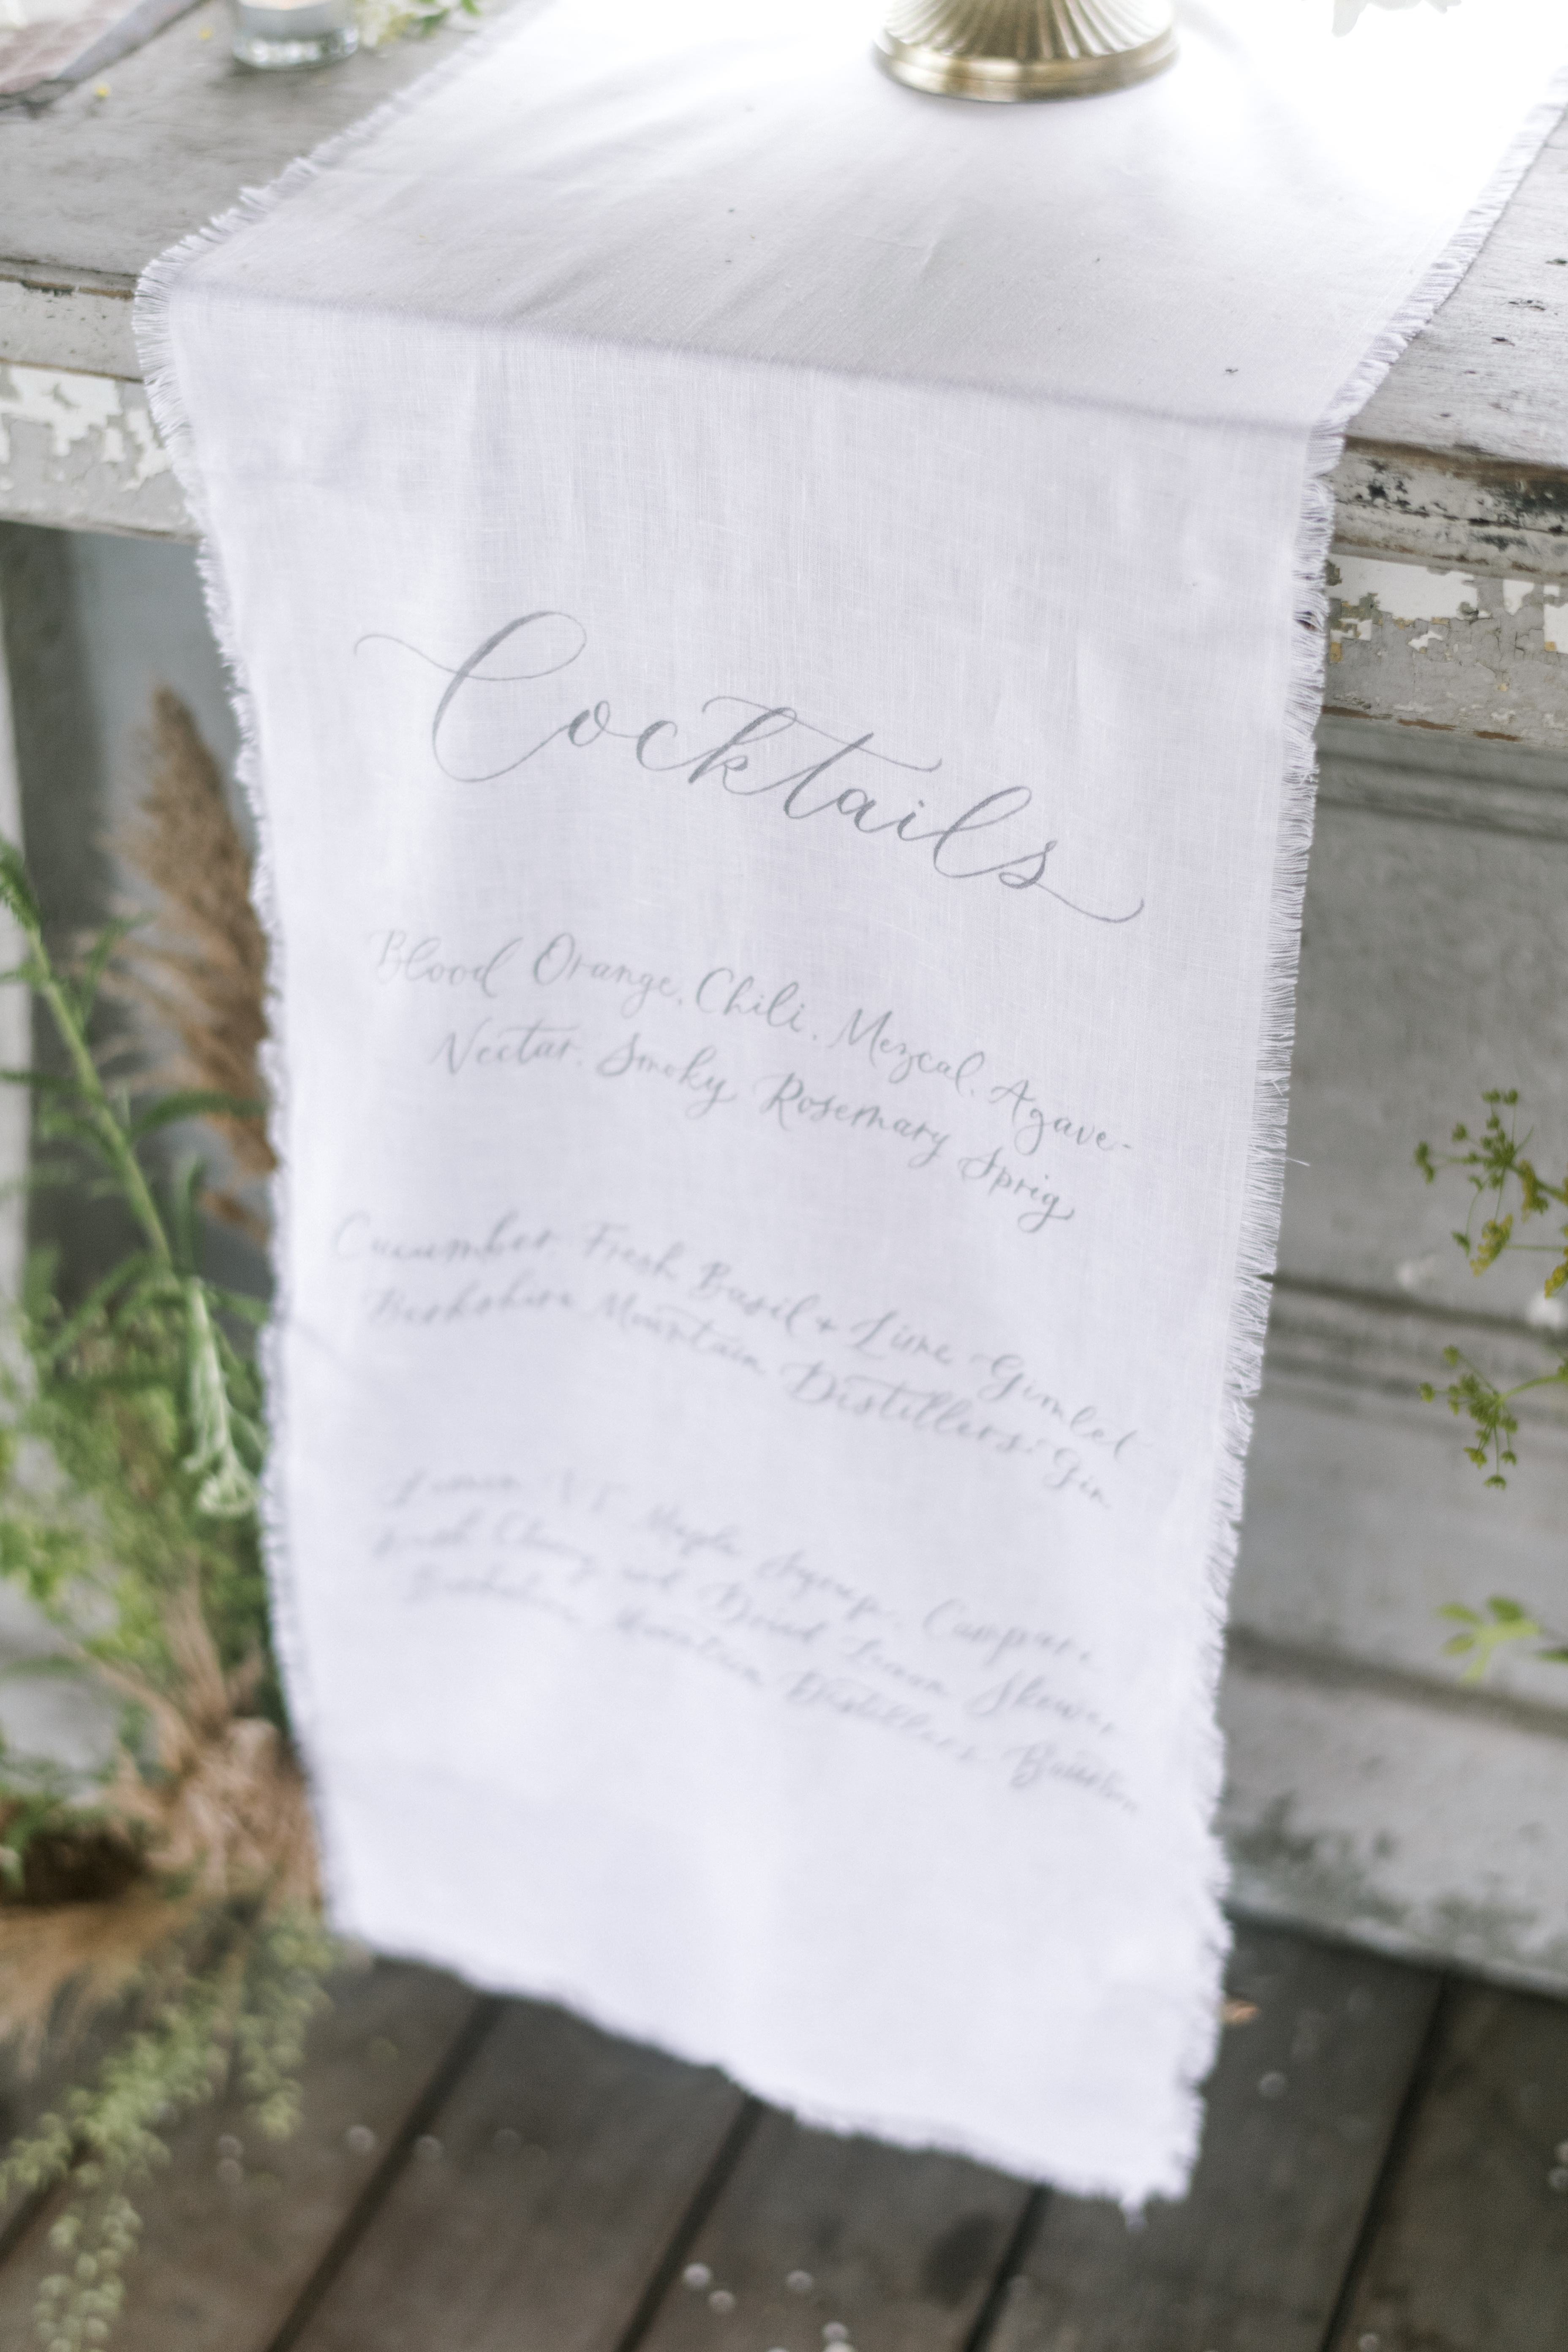 Cocktails
Blood Orange, Chili, Mezcal, Agave-
Nectar, Smoky Rosemary Sprig
Cucumber, Fresh Basil + Lime Gimlet
Berkshire Mountain Distillers' Gin
Lemon, VT Maple Syrup, Campari
Fresh Cherry and Dried Lemon Skewer
Berkshire Mountain Distillers Bourbon